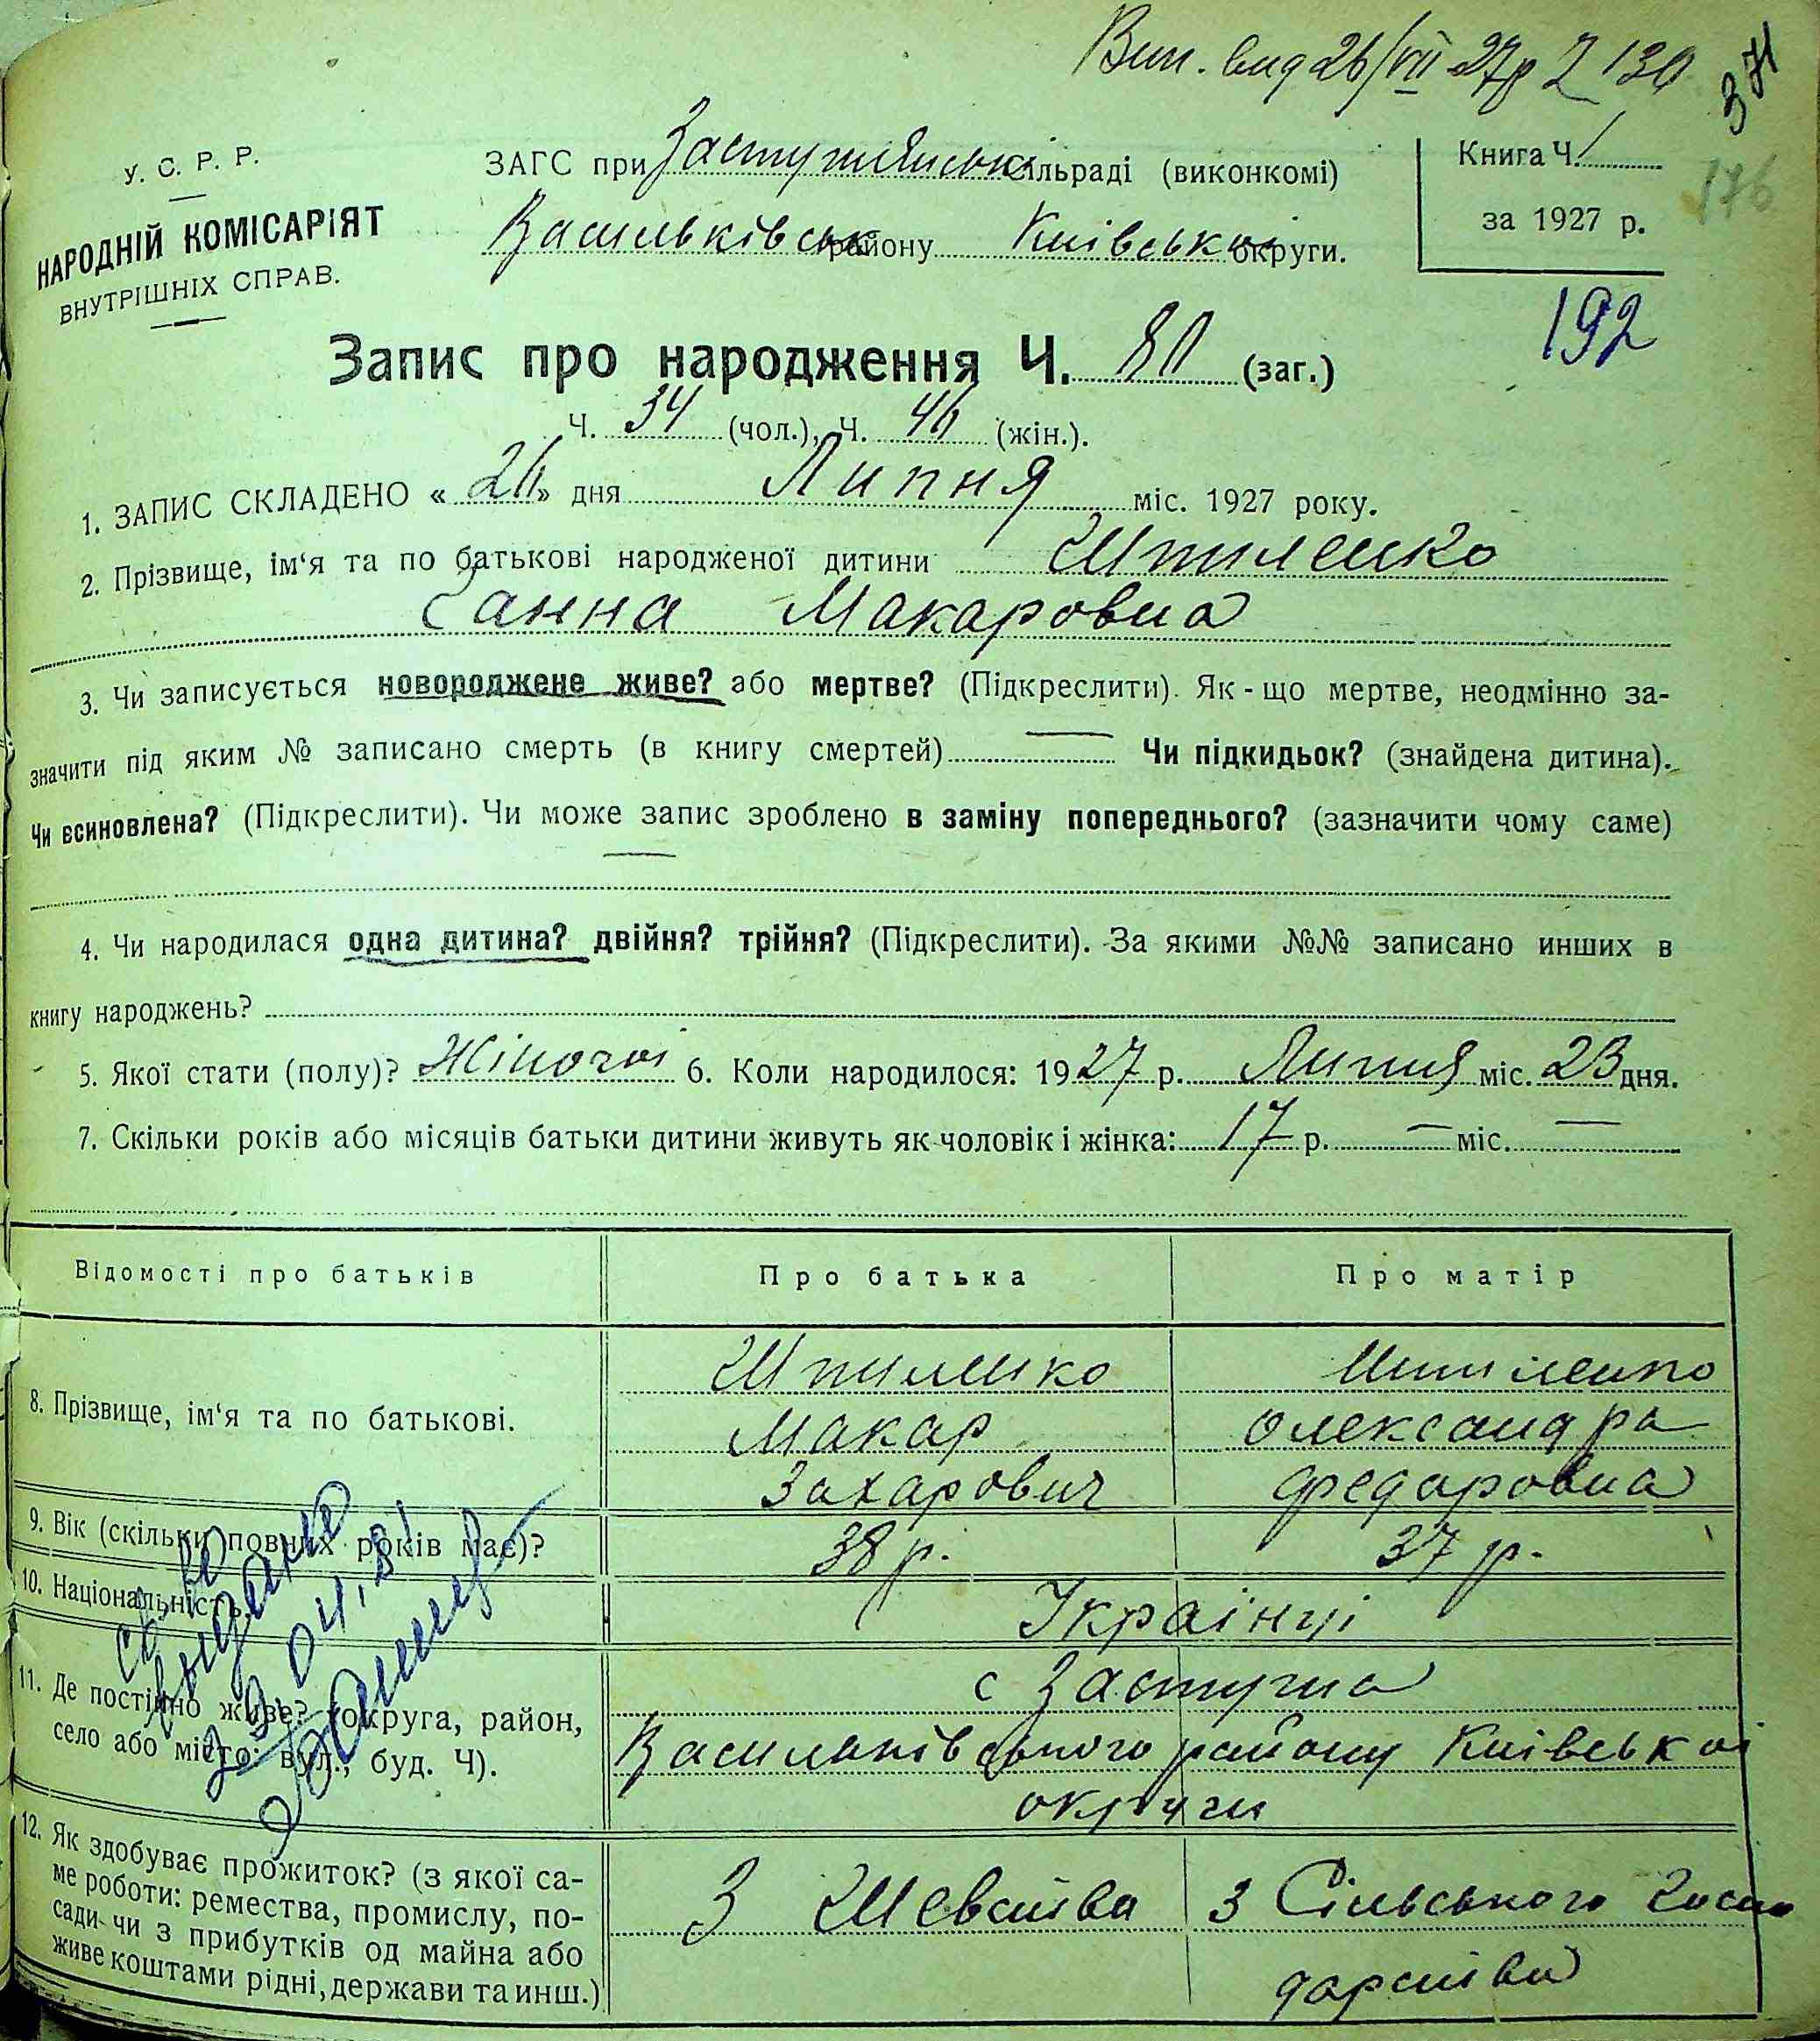 Вип. вид 26/VII 27р 130
371
176
У. С. Р. Р.
НАРОДНІЙ КОМІСАРІЯТ
ВНУТРІШНІХ СПРАВ.
ЗАГС при Застугнянські сільраді (виконкомі)
Васильківськ району Київської округи.
Книга Ч. 1
за 1927 р.
192
Запис про народження Ч. 80 (заг.)
Ч. 34 (чол.), Ч. 46 (жін.).
1. ЗАПИС СКЛАДЕНО « 26 » дня Липня міс. 1927 року.
2. Прізвище, ім‘я та по батькові народженої дитини Шпиленко
Ганна Макаровна
3. Чи записується новороджене живе? або мертве? (Підкреслити). Як-що мертве, неодмінно за-
значити під яким № записано смерть (в книгу смертей) — Чи підкидьок? (знайдена дитина).
Чи всиновлена? (Підкреслити). Чи може запис зроблено в заміну попереднього? (зазначити чому саме)
—
4. Чи народилася одна дитина? двійня? трійня? (Підкреслити). За якими №№ записано инших в
книгу народжень?
5. Якої стати (полу)? Жіночої 6. Коли народилося: 1927 р. Липня міс. 23 дня.
7. Скільки років або місяців батьки дитини живуть як чоловік і жінка: 17 р. — міс. —
Відомості про батьків Про батька Про матір
8. Прізвище, ім‘я та по батькові.
Шпиленко Шпиленко
Макар Олександра
Захарович Федаровна
9. Вік (скільки повних років має)? 38 р. 37 р.
10. Національність. Українці
11. Де постійно живе? (округа, район,
село або місто; вул., буд. Ч).
с Застугна
Васильківського району Київської
округи
12. Як здобуває прожиток? (з якої са-
ме роботи: ремества, промислу, по-
сади чи з прибутків од майна або
живе коштами рідні, держави та инш.)
З Шевства З Сільського госпо
дарства